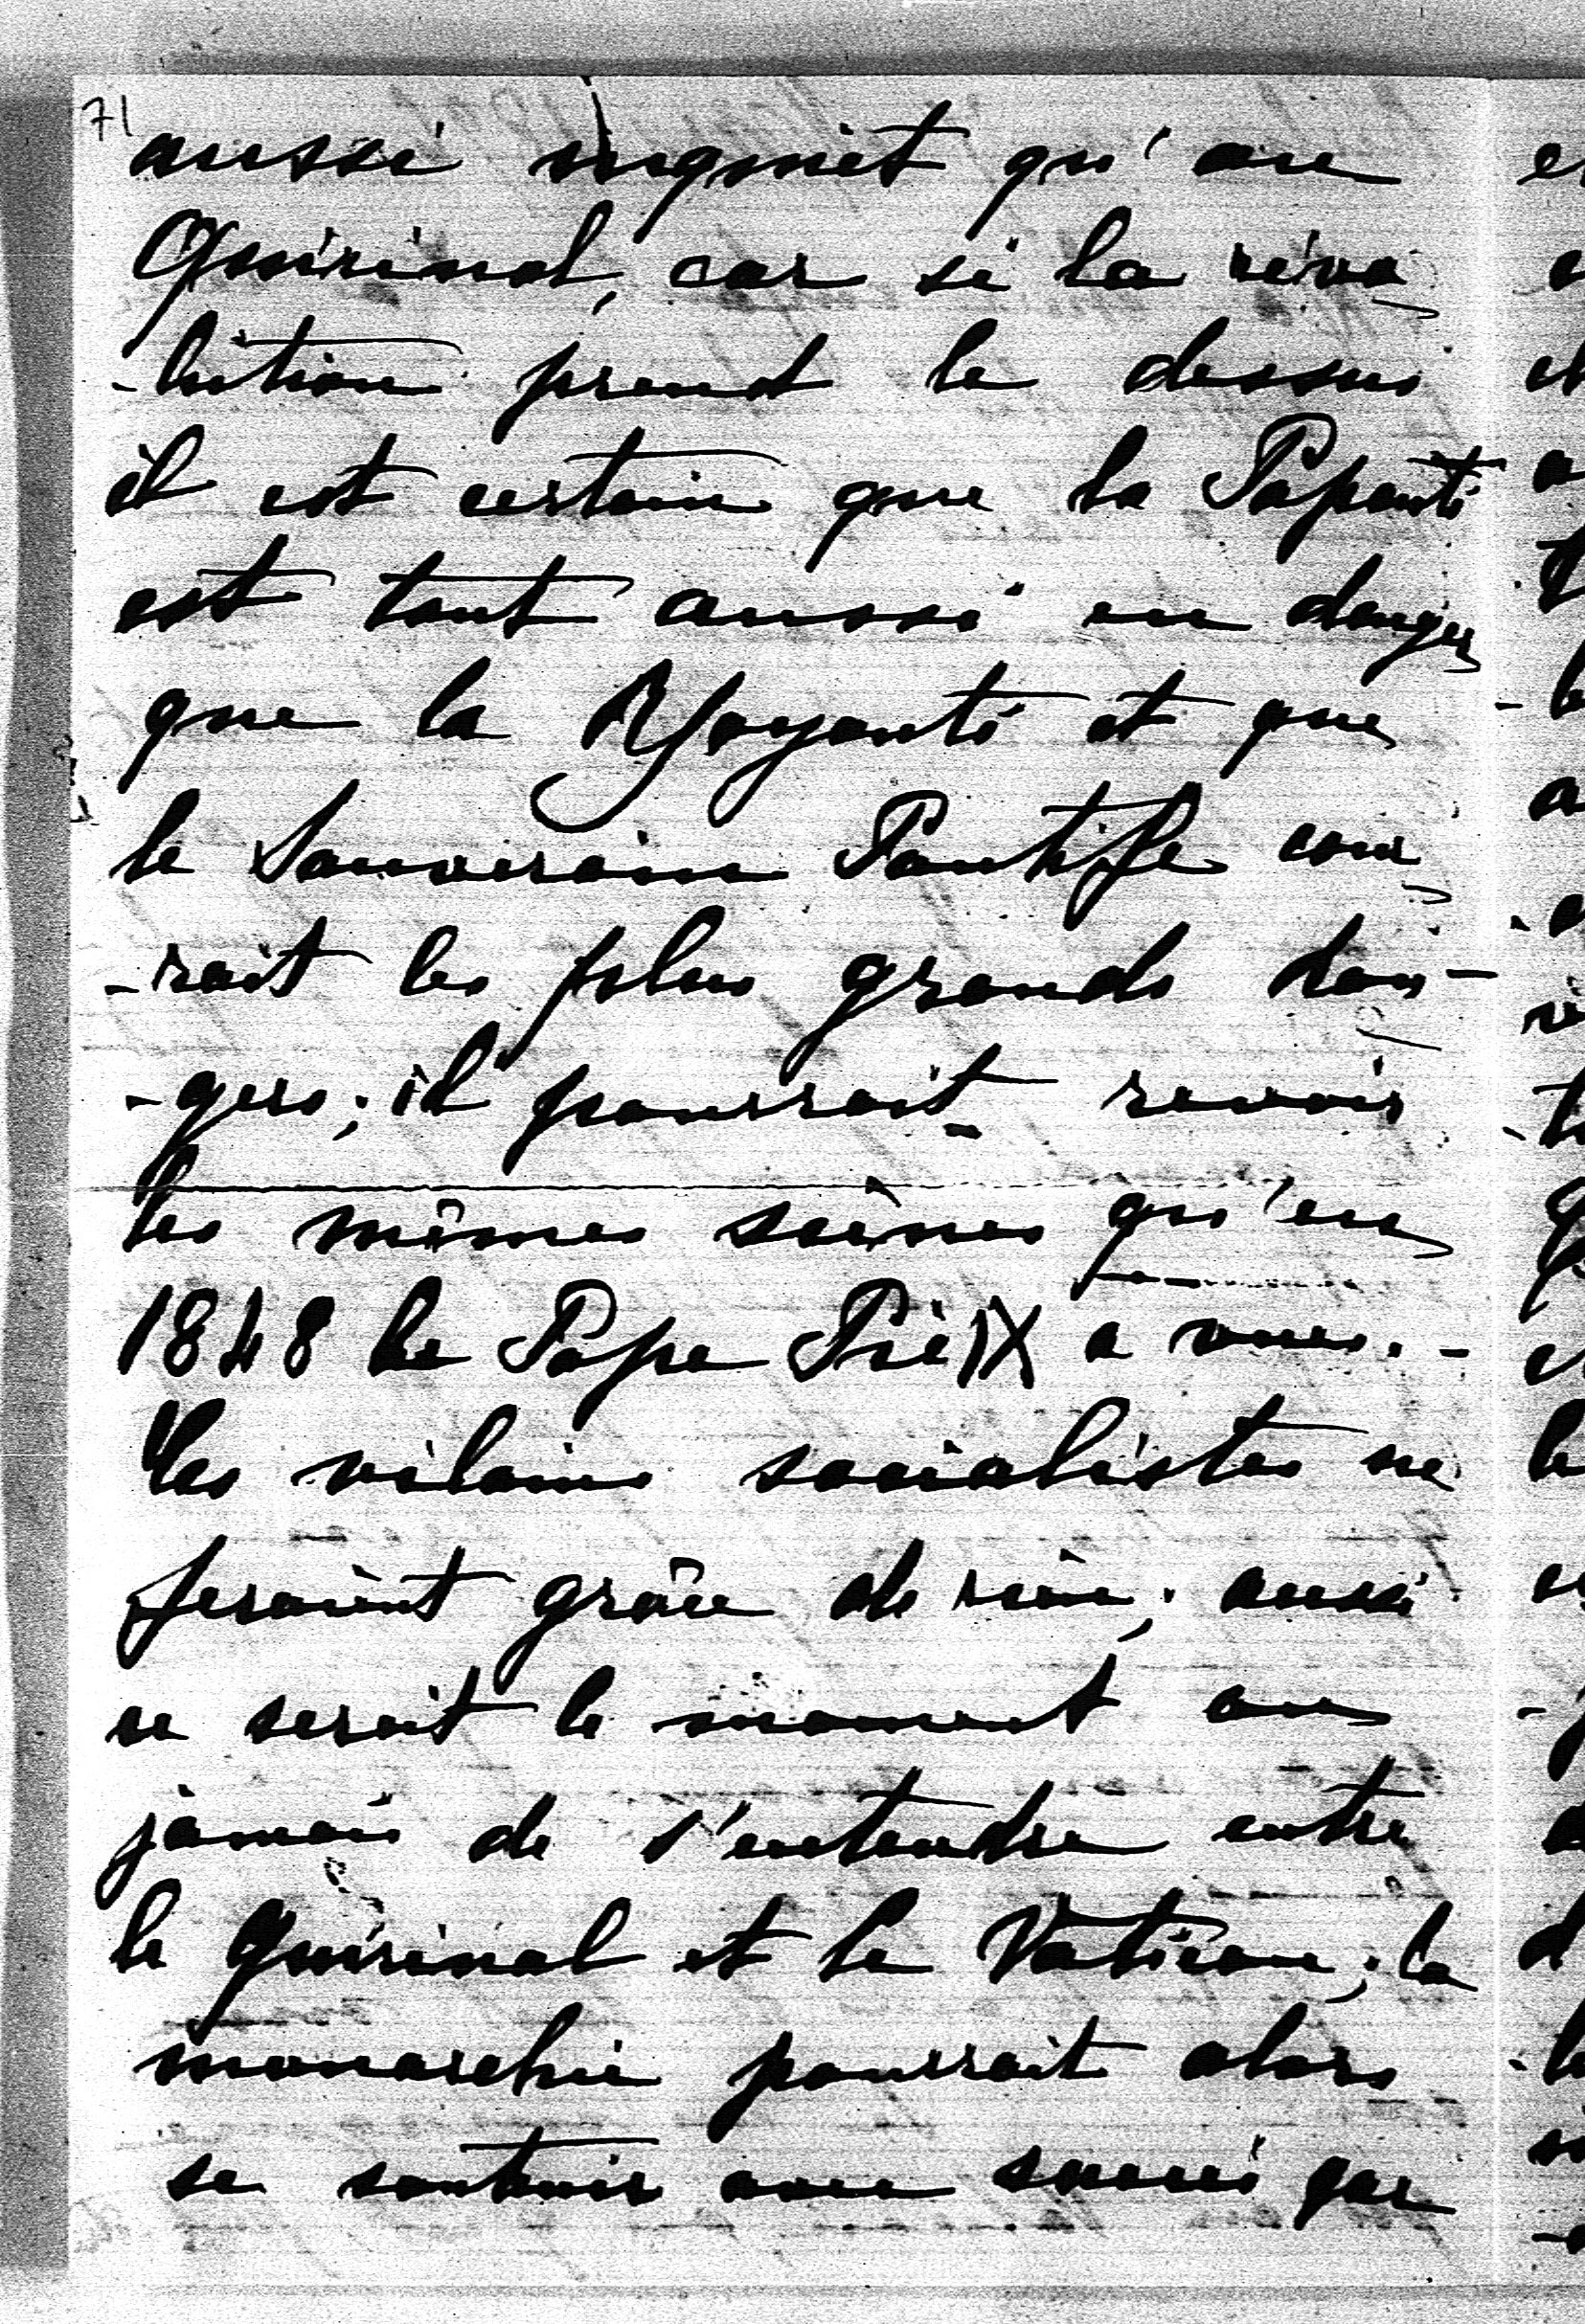 71
aussi inquiet qu'au
Quirinal, car si la révo
-lution prend le dessus
il est certain que la Papauté
est tout aussi en danger
que la Royauté et que
le Souverain Pontife cour
-rait les plus grands dan-
-gers; il pourrait revoir
les mêmes scènes qu'en
1848 le Pape Pie IX a vues.-
Les vilains socialistes ne
feraient grâce de rien; aussi
ce serait le moment ou
jamais de s'entendre entre
le Quirinal et le Vatican; la
monarchie pourrait alors
se soutenir avec succès par